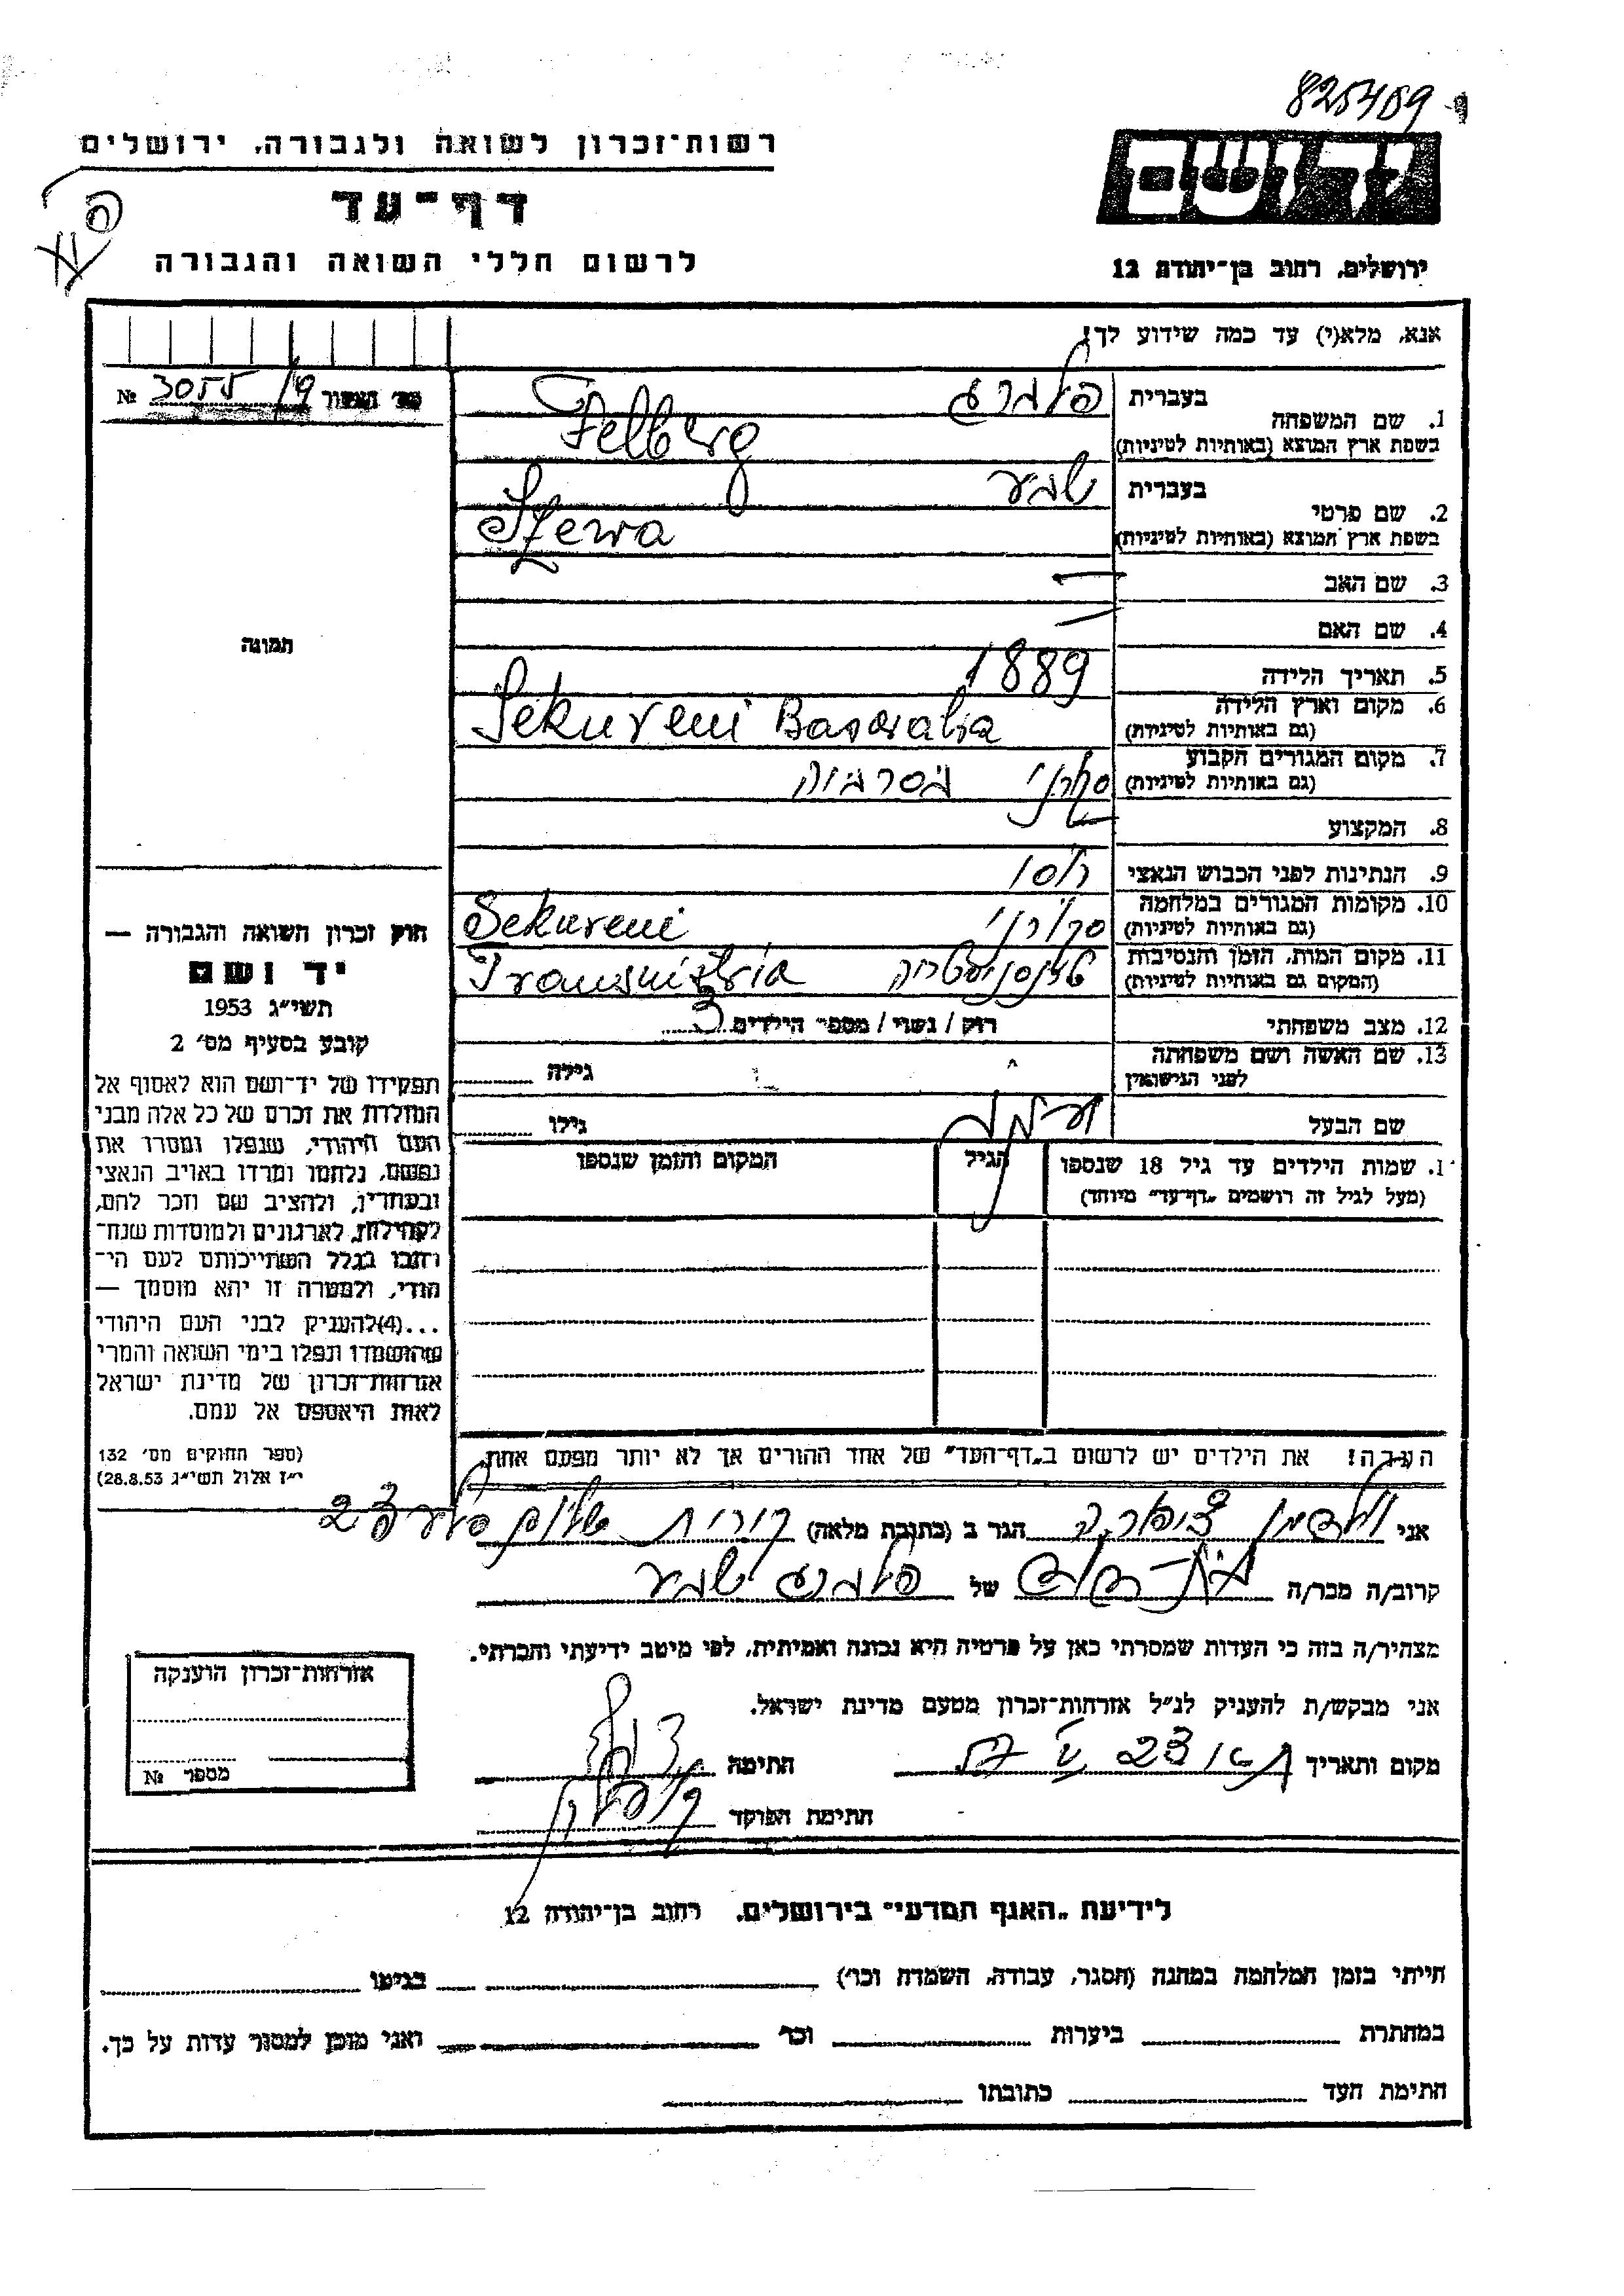 825459
רשות־זכרון לשואה ולגבורה, ירושלים
יד ושם
דף־עד
לרשום חללי השואה והגבורה
ירושלים, רחוב בן־יהודה 12
אנא, מלא(י) עד כמה שידוע לך!
№ 3055/9
בעברית פלברג
1. שם המשפחה
בשפת ארץ המוצא (באותיות לטיניות) Felberg
בעברית שבע
2. שם פרטי
בשפת ארץ המוצא (באותיות לטיניות) Szewa
3. שם האב —
4. שם האם —
5. תאריך הלידה 1889
6. מקום וארץ הלידה
(גם באותיות לטיניות) Sekureni Basarabia
7. מקום המגורים הקבוע
(גם באותיות לטיניות) סקרני בסרביה
8. המקצוע —
9. הנתינות לפני הכבוש הנאצי
10. מקומות המגורים במלחמה
(גם באותיות לטיניות) סקורני Sekureni
11. מקום המות, הזמן והנסיבות
(המקום גם באותיות לטיניות) טרנסניסטריה Transnistria
12. מצב משפחתי רוק / נשוי / מספר הילדים 3
13. שם האשה ושם משפחתה
לפני הנישואין גילה
שם הבעל גילו
שמות הילדים עד גיל 18 שנספו הגיל המקום והזמן שנספו
(מעל לגיל זה רושמים „דף־עד” מיוחד)
הערה! את הילדים יש לרשום ב„דף־העד” של אחד ההורים אך לא יותר מפעם אחת.
תמונה
חוק זכרון השואה והגבורה —
יד ושם
תשי״ג 1953
קובע בסעיף מס׳ 2
תפקידו של יד־ושם הוא לאסוף אל
המולדת את זכרם של כל אלה מבני
העם היהודי, שנפלו ומסרו את
נפשם, נלחמו ומרדו באויב הנאצי
ובעוזריו, ולהציב שם וזכר להם,
לקהילות, לארגונים ולמוסדות שנח־
רבו בגלל השתייכותם לעם הי־
הודי, ולמטרה זו יהא מוסמך —
...(4)להעניק לבני העם היהודי
שהושמדו ונפלו בימי השואה והמרי
אזרחות־זכרון של מדינת ישראל
לאות היאספם אל עמם.
(ספר החוקים מס׳ 132
י״ז אלול תשי״ג 28.8.53)
אני ולדמן ציפורה הגר ב (כתובת מלאה) קרית שלום
קרוב/ה מכר/ה של פלברג שבע
מצהיר/ה בזה כי העדות שמסרתי כאן על פרטיה היא נכונה ואמיתית, לפי מיטב ידיעתי והכרתי.
אני מבקש/ת להעניק לנ״ל אזרחות־זכרון מטעם מדינת ישראל.
מקום ותאריך חתימה
חתימת הפוקד
אזרחות־זכרון הוענקה
מספר №
לידיעת „האגף המדעי” בירושלים, רחוב בן־יהודה 12
הייתי בזמן המלחמה במחנה (הסגר, עבודה, השמדה וכו׳) בגיטו
במחתרת ביערות וכו׳ ואני מוכן למסור עדות על כך.
חתימת העד כתובתו